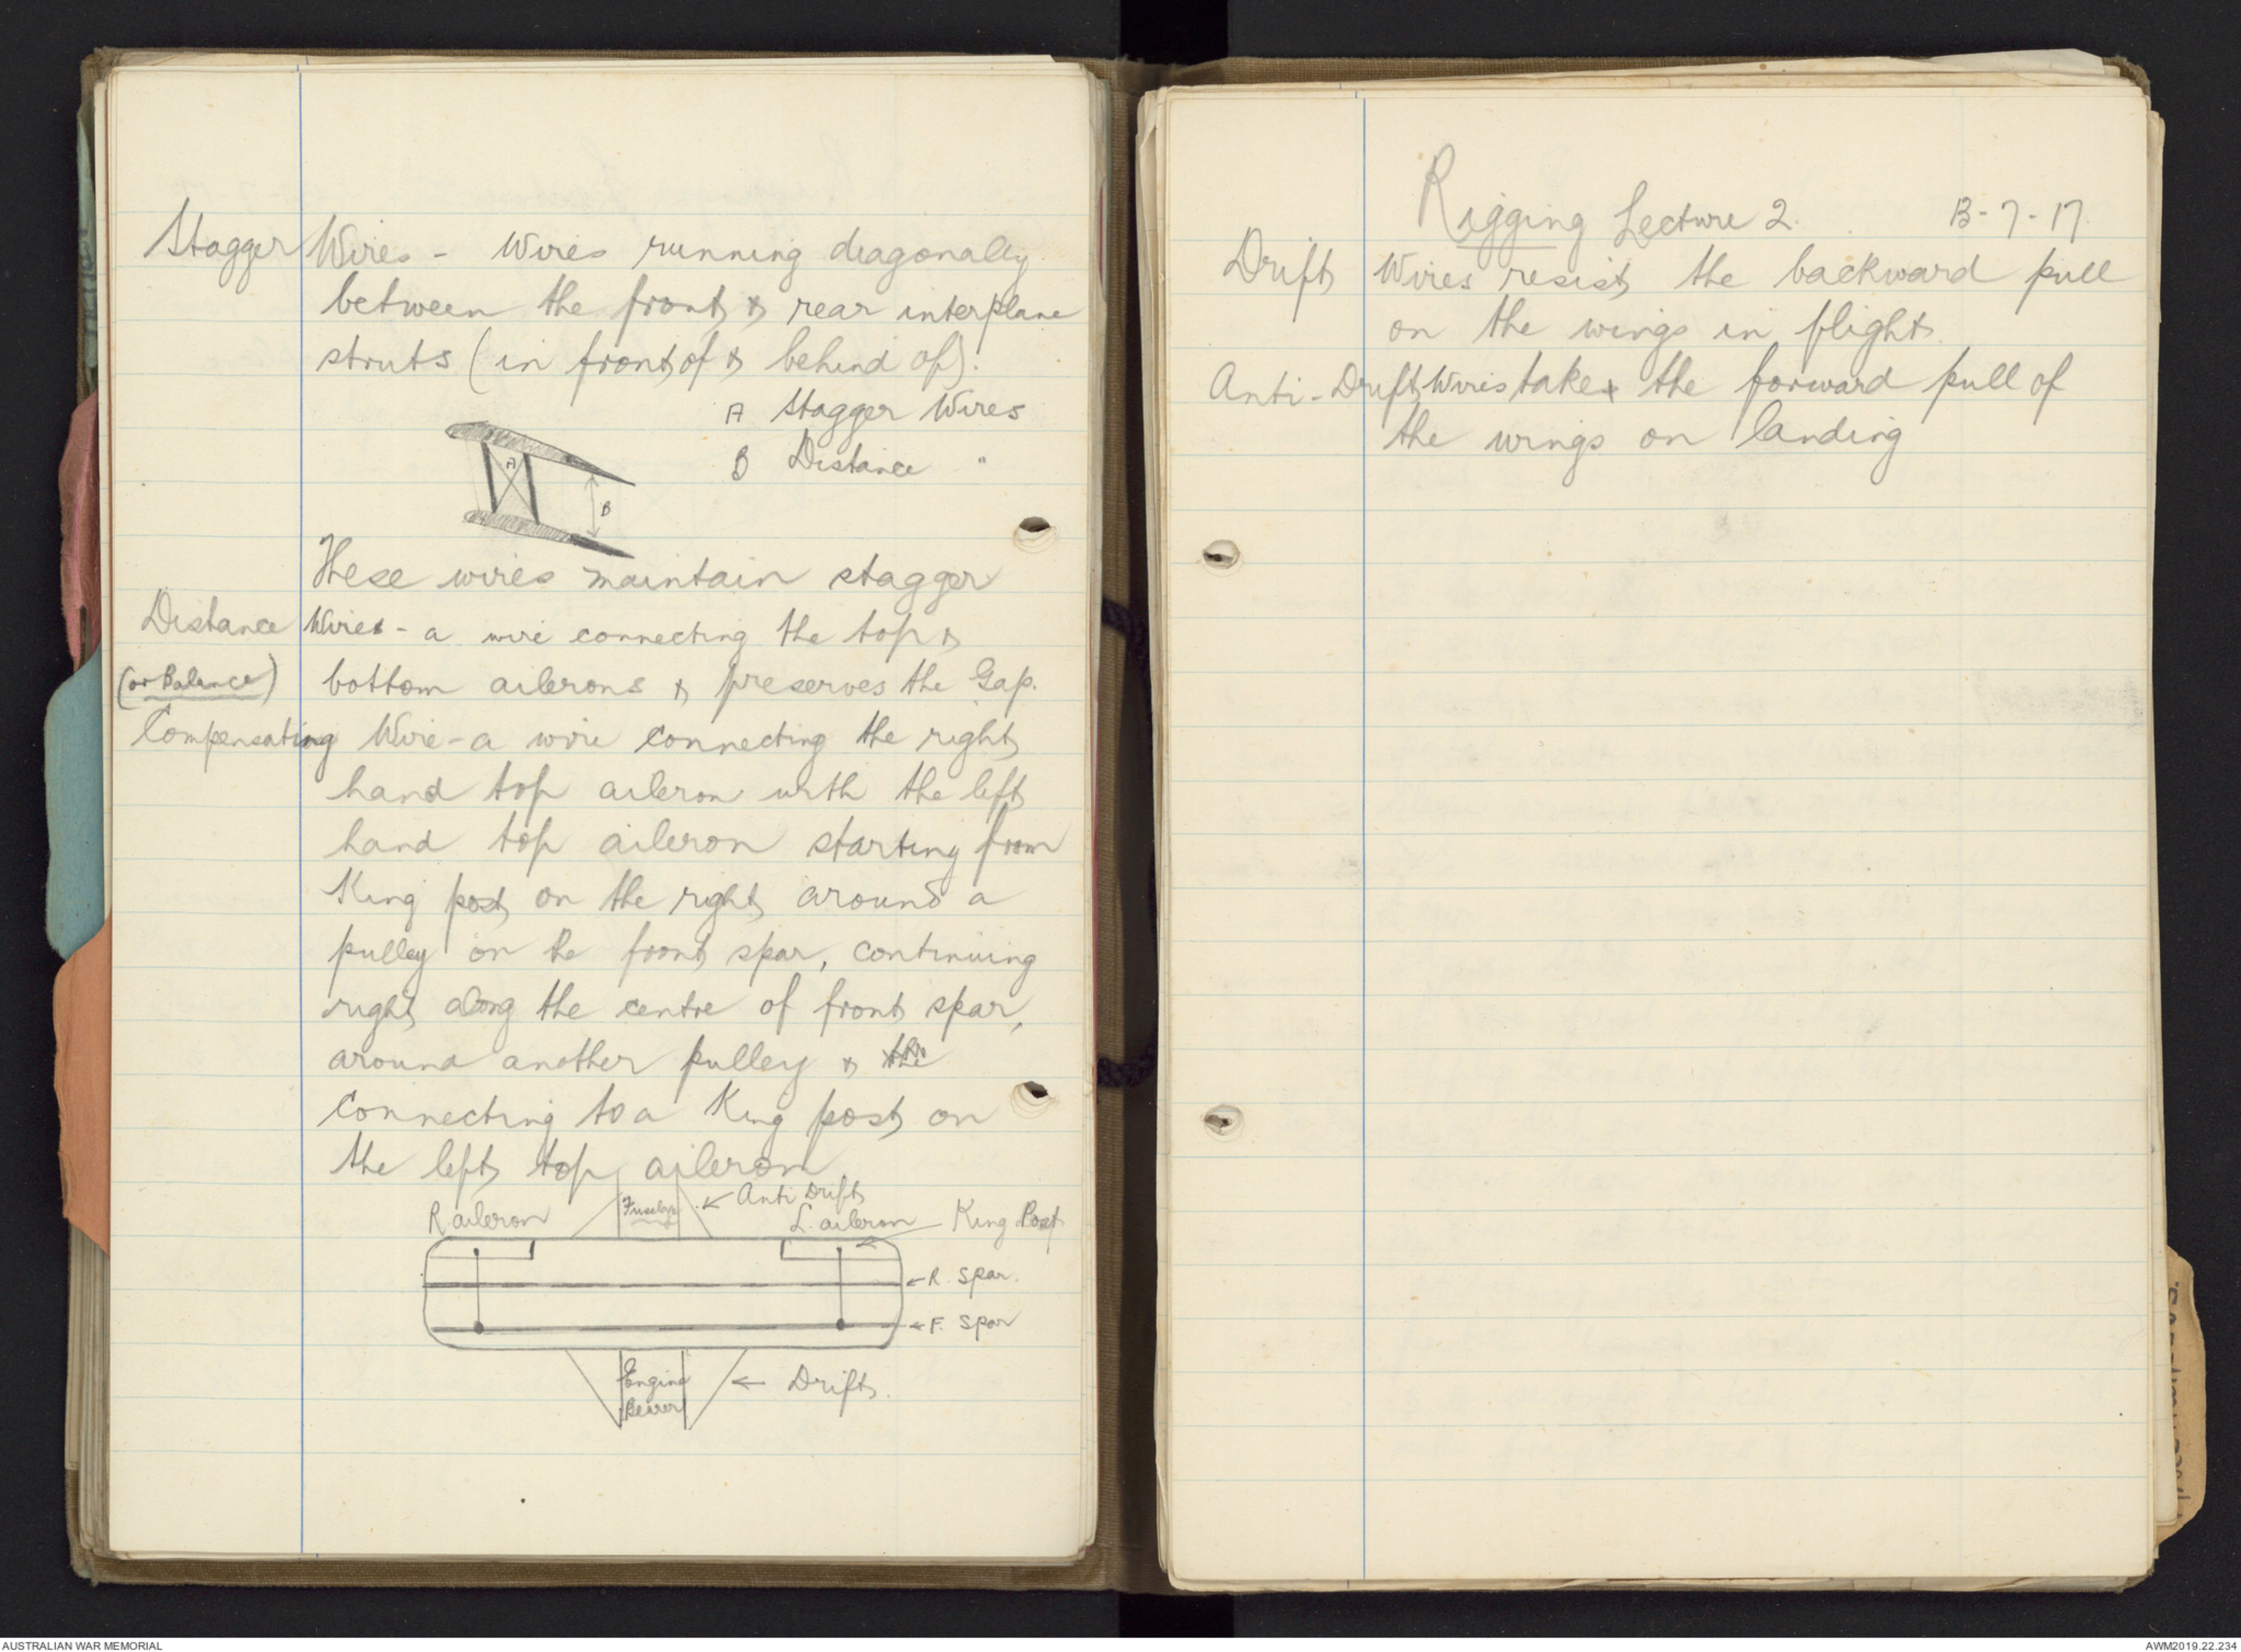 Stagger Wires - Wires running diagonally
between the front & rear interplane
struts (in front of & behind of).
A Stagger Wires
B Distance "
A
B
These wires maintain stagger
Distance Wires - a wire connecting the top &
(or Balance) bottom ailerons & preserves the Gap.
Compensating Wire - a wire connecting the right
hand top aileron with the left
hand top aileron starting from
King post on the right around a
pulley on the front spar, continuing
right along the centre of front spar,
around another pulley &
connecting to a King post on
the left top aileron
R aileron Fuselage Anti Drift
L. aileron King Post
R. Spar.
F. Spar
Engine
Bearer
Drift.
Rigging Lecture 2. 13-7-17.
Drift Wires resist the backward pull
on the wings in flight.
Anti-Drift Wires take the forward pull of
the wings on landing
AUSTRALIAN WAR MEMORIAL
AWM2019.22.234